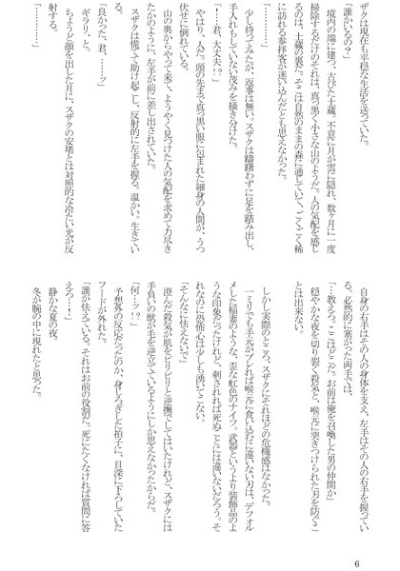 ザクは現在も平穏な生活を送っていた。
「誰かいるの？」
境内の端に建つ、古びた土蔵。不意に月が雲に隠れ、数ヶ月に一度
掃除するだけのそれは、真っ黒く小さな山のようだ。人の気配を感じ
るのは、土蔵の裏だ。そこは自然のままの森に通じていて、ごくごく稀
に訪れる参拝客が迷い込んだとも思えなかった。
「…………」
少し待ってみたが、返事は無い。スザクは躊躇わずに足を踏み出し、
手入れもしていない茂みを掻き分けた。
「――君、大丈夫！？」
やはり、人だ。頭の先まで真っ黒い服に包まれた細身の人間が、うつ
伏せに倒れている。
山の奥からやって来て、ようやく見つけた人の気配を求めて力尽き
たかのように、左手が前に差し出されていた。
スザクは慌てて助け起こし、反射的に左手を握る。温かい。生きてい
る。
「良かった、君、――ッ」
ギラリ、と。
ちょうど顔を出した月に、スザクの安堵とは対照的な冷たい光が反
射する。
「…………」
自身の右手はその人の身体を支え、左手はその人の右手を握ってい
る。必然的に塞がった両手では、
「…教えろ。ここはどこだ。お前は俺を召喚した男の仲間か」
穏やかな夜を切り裂く殺気と、喉元に突きつけられた刃を防ぐこ
とは出来ない。
しかし実際のところ、スザクにそれほどの危機感はなかった。
一ミリでも手元がブレれば喉元に食い込むに違いない刃は、デフォル
メした稲妻のような、歪な虹色のナイフ。武器というより装飾品のよ
うな印象だったけれど、刺されれば死ぬことには違いないだろう。そ
れなのに恐怖心は少しも湧いてこない。
「そんなに怯えないで」
澄んだ殺気が肌をビリビリと逆撫でしてはいたけれど、スザクには
手負いの獣が毛を逆立てているようにしか思えなかったからだ。
「何…ッ？」
予想外の反応だったのか、身じろぎした拍子に、目深に下ろしていた
フードが外れた。
「誰が怯えている。それはお前の役割だ。死にたくなければ質問に答
えろ…！」
静かな夏の夜。
冬が腕の中に現れたと思った。
6